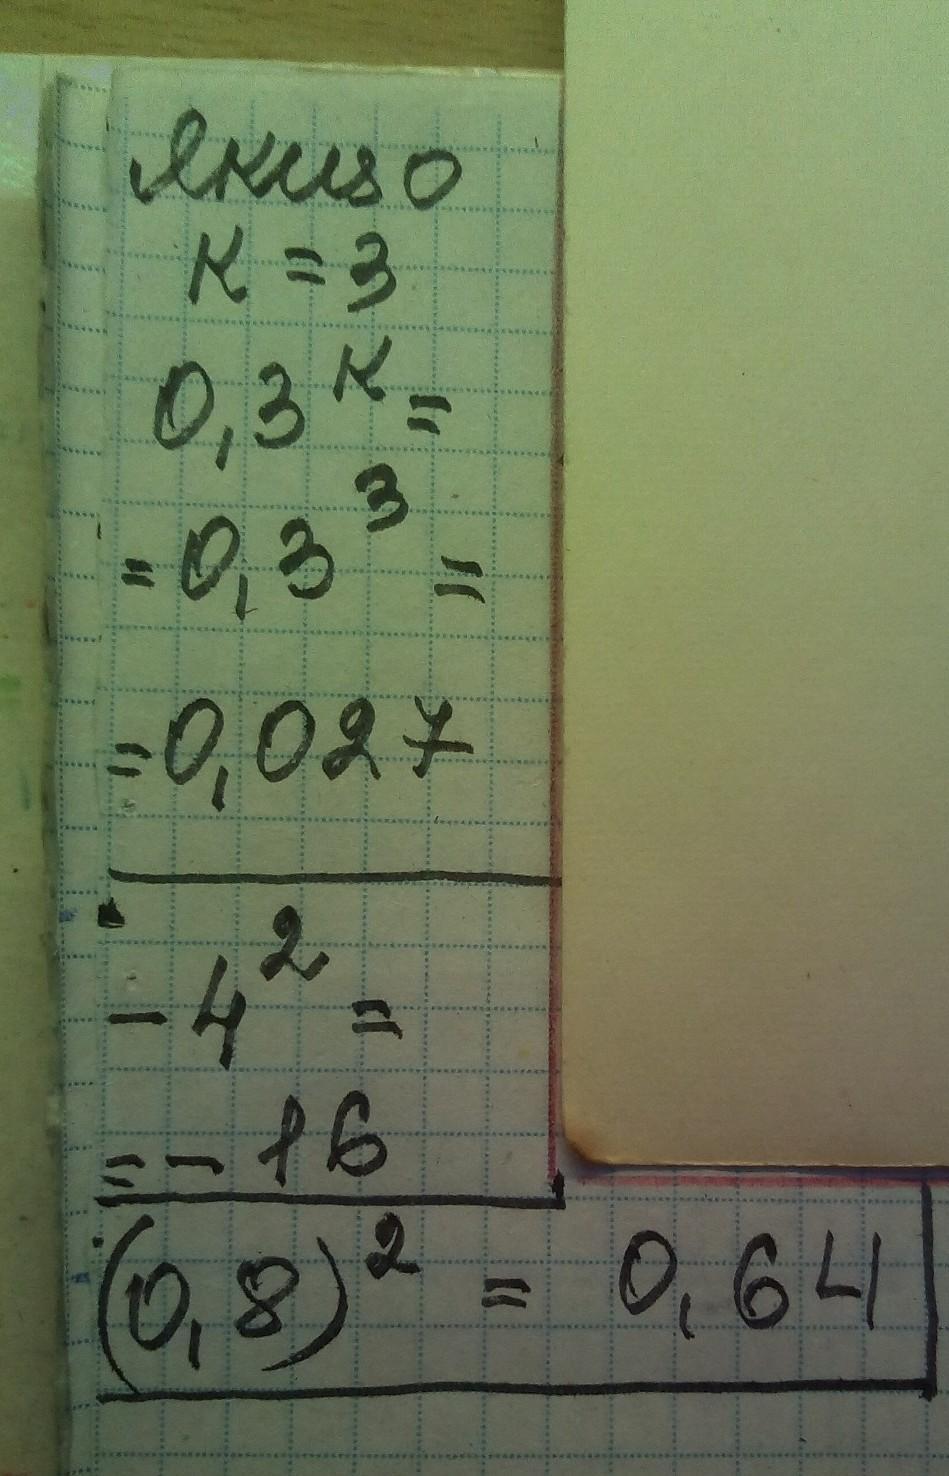 Якщо
к = 3
0,3^к =
= 0,3^3 =
= 0,027
- 4^2 =
= - 16
(0,8)^2 = 0,64